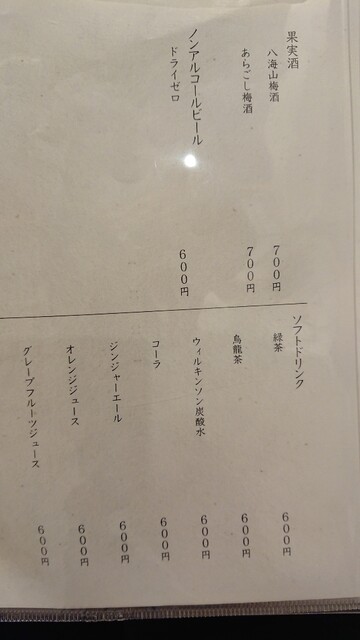 果実酒
八海山梅酒 700円
あらごし梅酒 700円
ノンアルコールビール
ドライゼロ 600円
ソフトドリンク
緑茶 600円
烏龍茶 600円
ウィルキンソン炭酸水 600円
コーラ 600円
ジンジャーエール 600円
オレンジジュース 600円
グレープフルーツジュース 600円